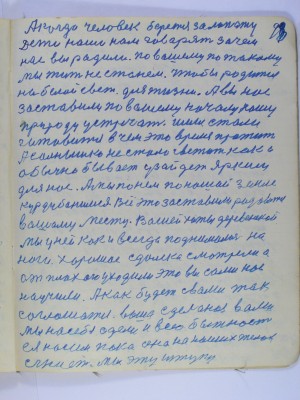 А когда человек берется за лопату
Дети наши нам говорят зачем
нас вы радили. по вашему по такому
мы жит не станем. Чтобы родится
на белой свет. для жизни. А вы нас
заставили по вашему началу нашу
природу устрочат. шли стали
готовится в чем это время прожит
А солнышко не стало светот как
обычно бывает узайдет Яркими
для нас. А мы по нем по нашой земле
Всё это заставило раз
вашему месту. Вашей хоть деревенкой
Мы у ней как и всегда поднимался на
ноги. Хорошое сделали смотрели а
от плохого уходили Это вы сами нас
научили. А как будет с вами так
согласится. выше сделанов вами
мы на себя одели и всю быт ност
носим пока она на наших телах
лежит. Мы эту штуку